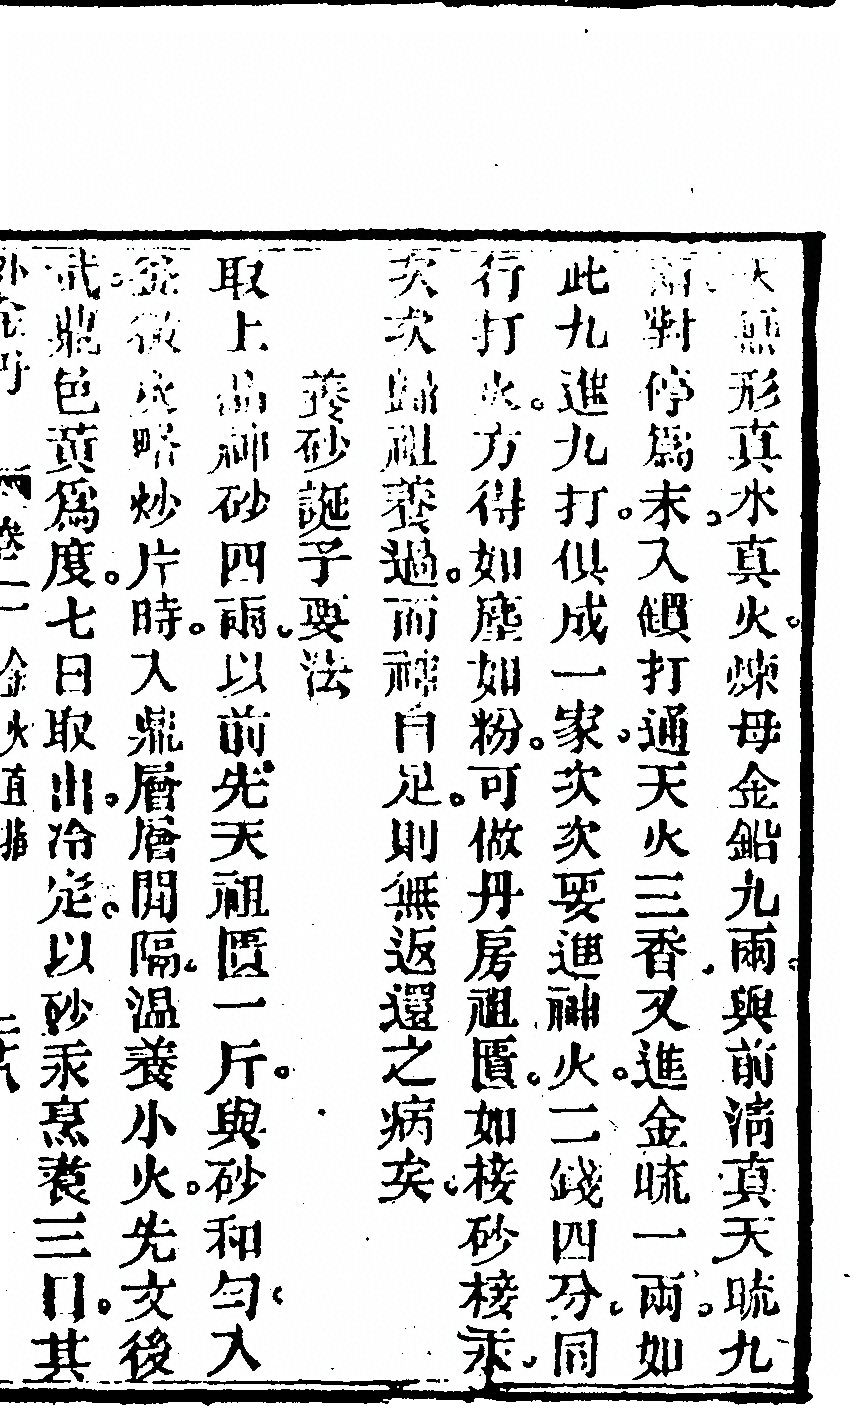 大無形真水真火。煉母金鉛九兩。與前清真天硫九
兩。對停爲末。入鑵打通天火三香。又進金硫一兩。如
此九進九打。俱成一家。次次要進神火。二錢四分。同
行打火。方得如塵如粉。可做丹房祖匱。如接砂接汞。
次次歸祖養過。而神自足。則無返還之病矣。
養砂誕子要法
取上品神砂四兩。以前先天祖匱一斤。與砂和勻。入
釜微火略炒片時。入鼎層層間隔。温養小火。先文後
武。鼎色黄爲度。七日取出。冷定。以砂汞烹養三日。其
外金丹 卷二 金火直指